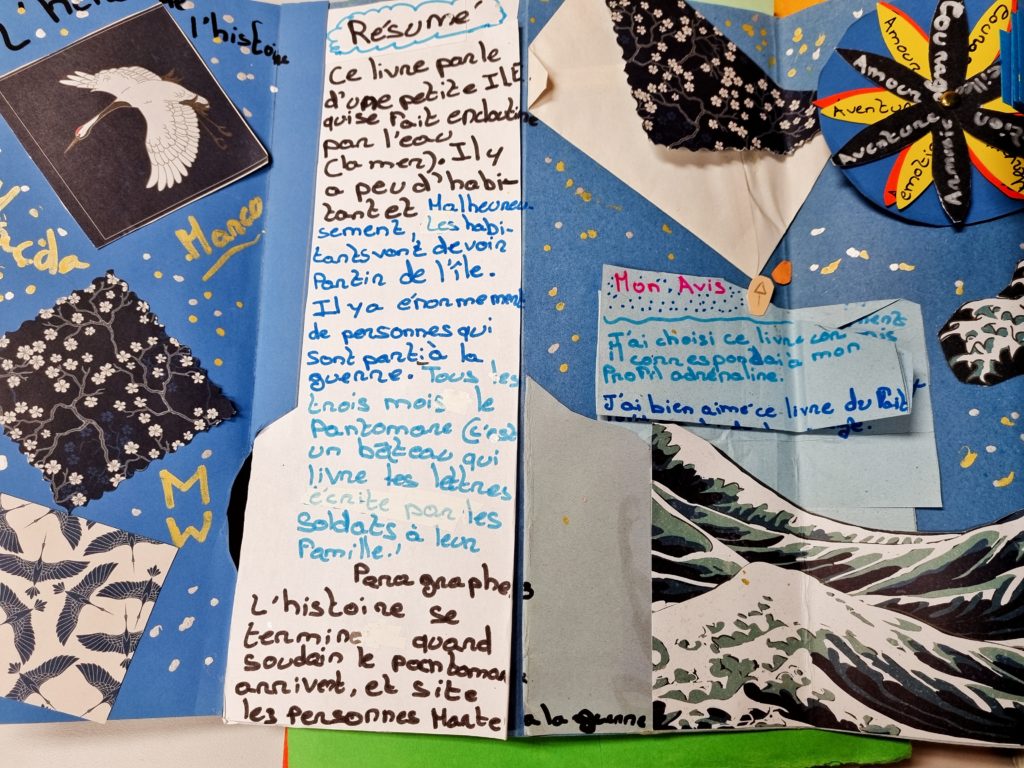 l'histoire
Marco
MW
Résumé
Ce livre parle
d'une petite ILE
qui se fait encloutine
par l'eau
(la mer). Il y
a peu d'habi-
tant et Malheureu-
sement, les habi-
tants vont devoir
partir de l'île.
Il y a énormement
de personnes qui
sont parti à la
guerre. Tous les
trois mois le
Pantomare (c'est
un bâteau qui
livre les lettres
écrite par les
soldats à leur
famille.!
Paragraphe
L'histoire se
termine quand
soudain le
arrivent, et site
les personnes Morte
a la guerre
Mon Avis
J'ai choisi ce livre
il correspondai a mon
Profil adrénaline.
J'ai bien aimé ce livre du Fait
Courage
Amour
Amour
Aventure
Aventure
Amitié
emotion